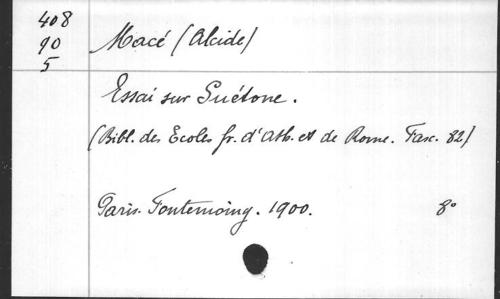 408
90
5
Macé (Alcide)
Essai sur Suétone.
(Bibl. des Ecoles fr. d'Ath. et de Rome. Fasc. 82)
Paris. Fontemoing. 1900. 8°